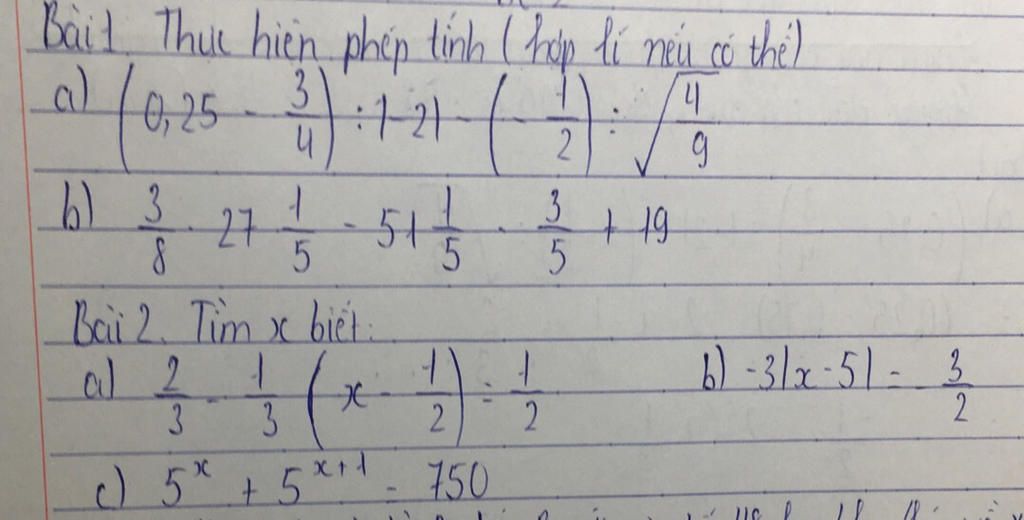 Bài 1. Thực hiện phép tính (hợp lí nếu có thể)
a) (0,25 - 3/4) : |-2| - (-1/2) : √(4/9)
b) 3/8 . 27 1/5 - 51 1/5 . 3/5 + 19
Bài 2. Tìm x biết:
a) 2/3 - 1/3 (x - 1/2) = 1/2 b) -3|x - 5| = -3/2
c) 5^x + 5^(x+1) = 750